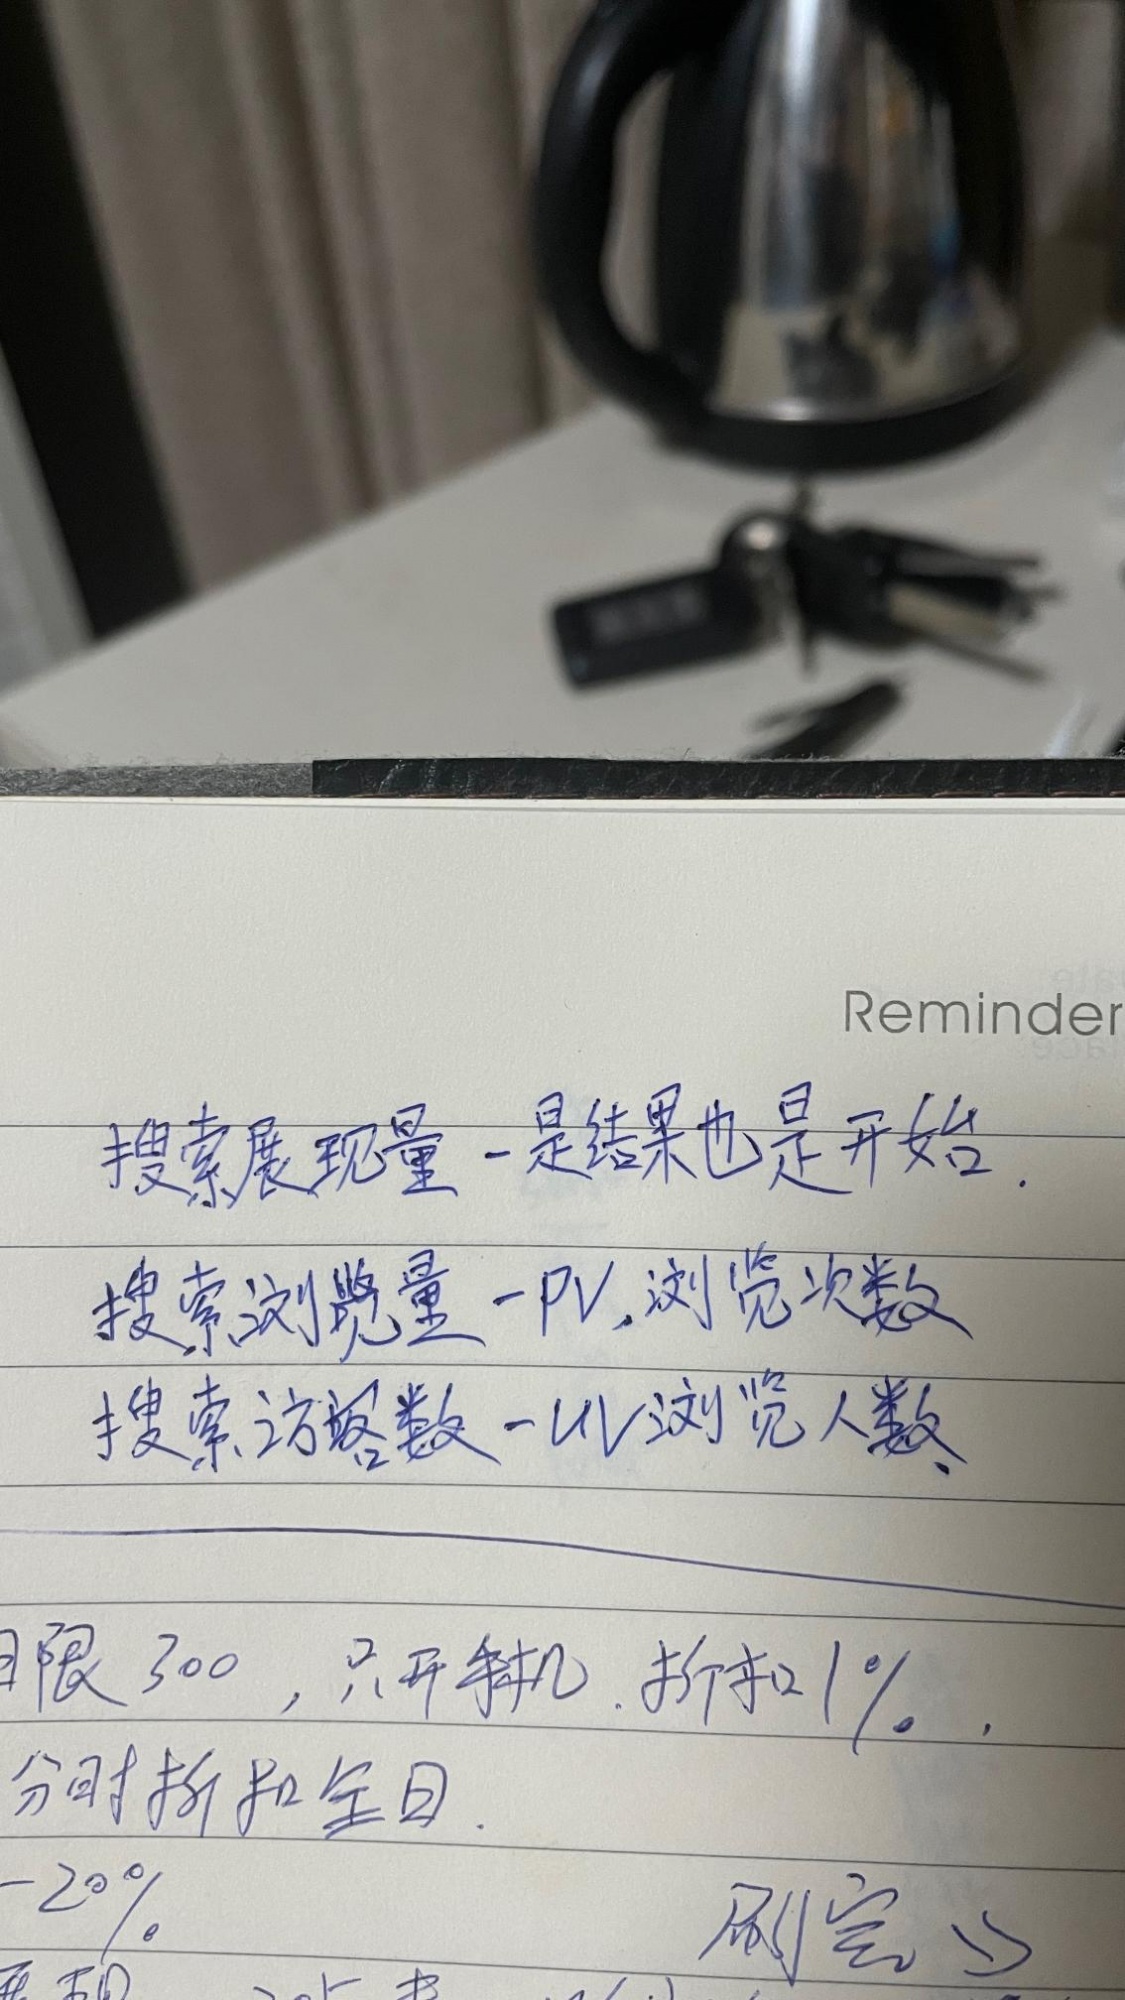 Reminder
搜索展现量-是结果也是开始.
搜索浏览量-PV.浏览次数
搜索访客数-UV浏览人数.
日限300,只开手机.折扣1%.
分时折扣全日.
-20%
刷完
展现